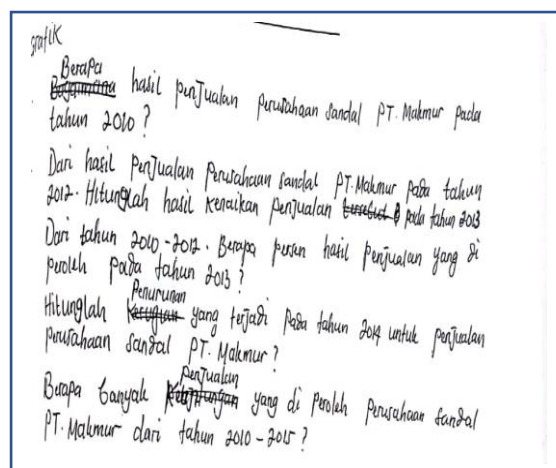 grafik
Berapa
Bagaimana hasil penjualan perusahaan sandal PT. Makmur pada
tahun 2010?
Dari hasil penjualan perusahaan sandal PT. Makmur pada tahun
2012. Hitunglah hasil kenaikan penjualan tersebut pada tahun 2013
Dari tahun 2010-2012. Berapa persen hasil penjualan yang di
peroleh pada tahun 2013?
Penurunan
Hitunglah kerugian yang terjadi pada tahun 2014 untuk penjualan
perusahaan sandal PT. Makmur?
Penjualan
Berapa banyak yang di peroleh perusahaan sandal
PT. Makmur dari tahun 2010-2015?